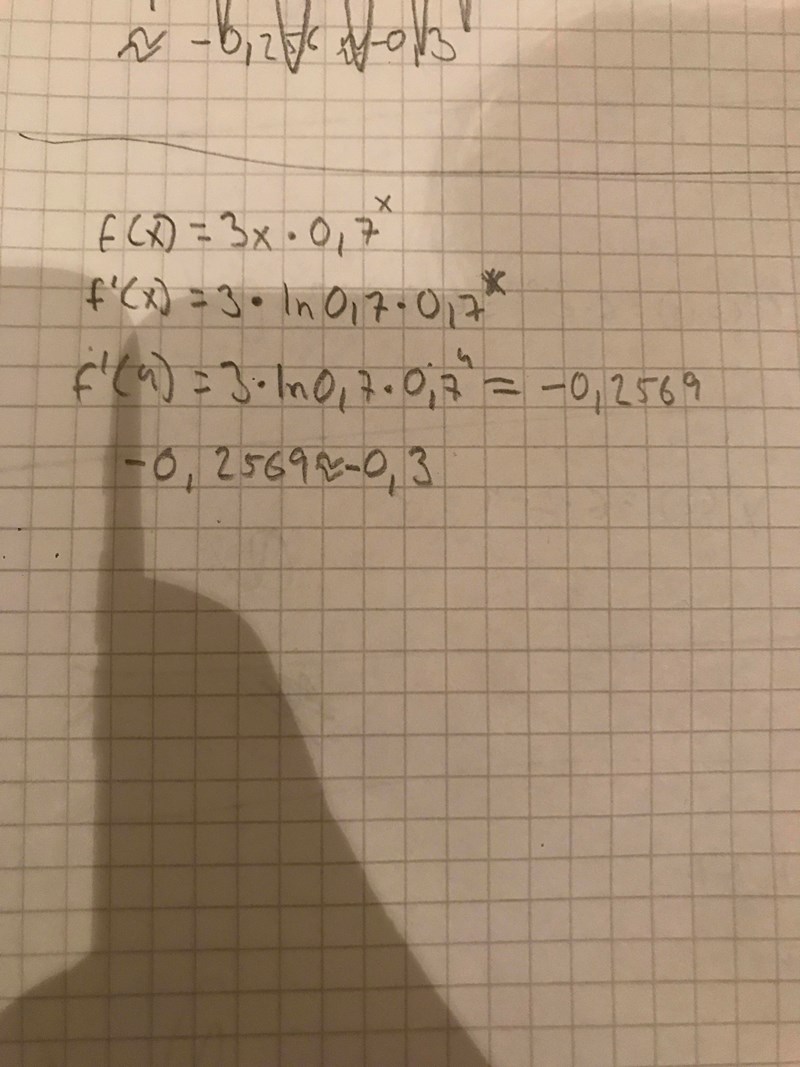 ≈ -0,256 ≈ -0,3
f(x) = 3x · 0,7^x
f'(x) = 3 · ln0,7 · 0,7^x
f'(4) = 3 · ln0,7 · 0,7^4 = -0,2569
-0,2569 ≈ -0,3